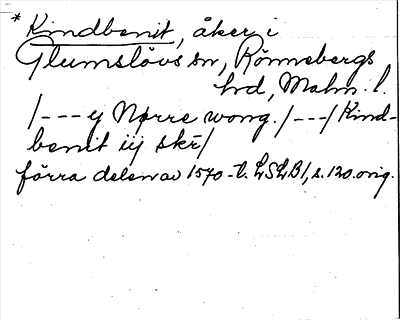 * Kindbenit, åker i
Glumslövs sn, Rönnebergs
hd, Malm. l.
/--- y Nørre wong. /---/ Kind-
benit iij skr/
förra delen av 1570-t. LSLB1, s. 120. orig.